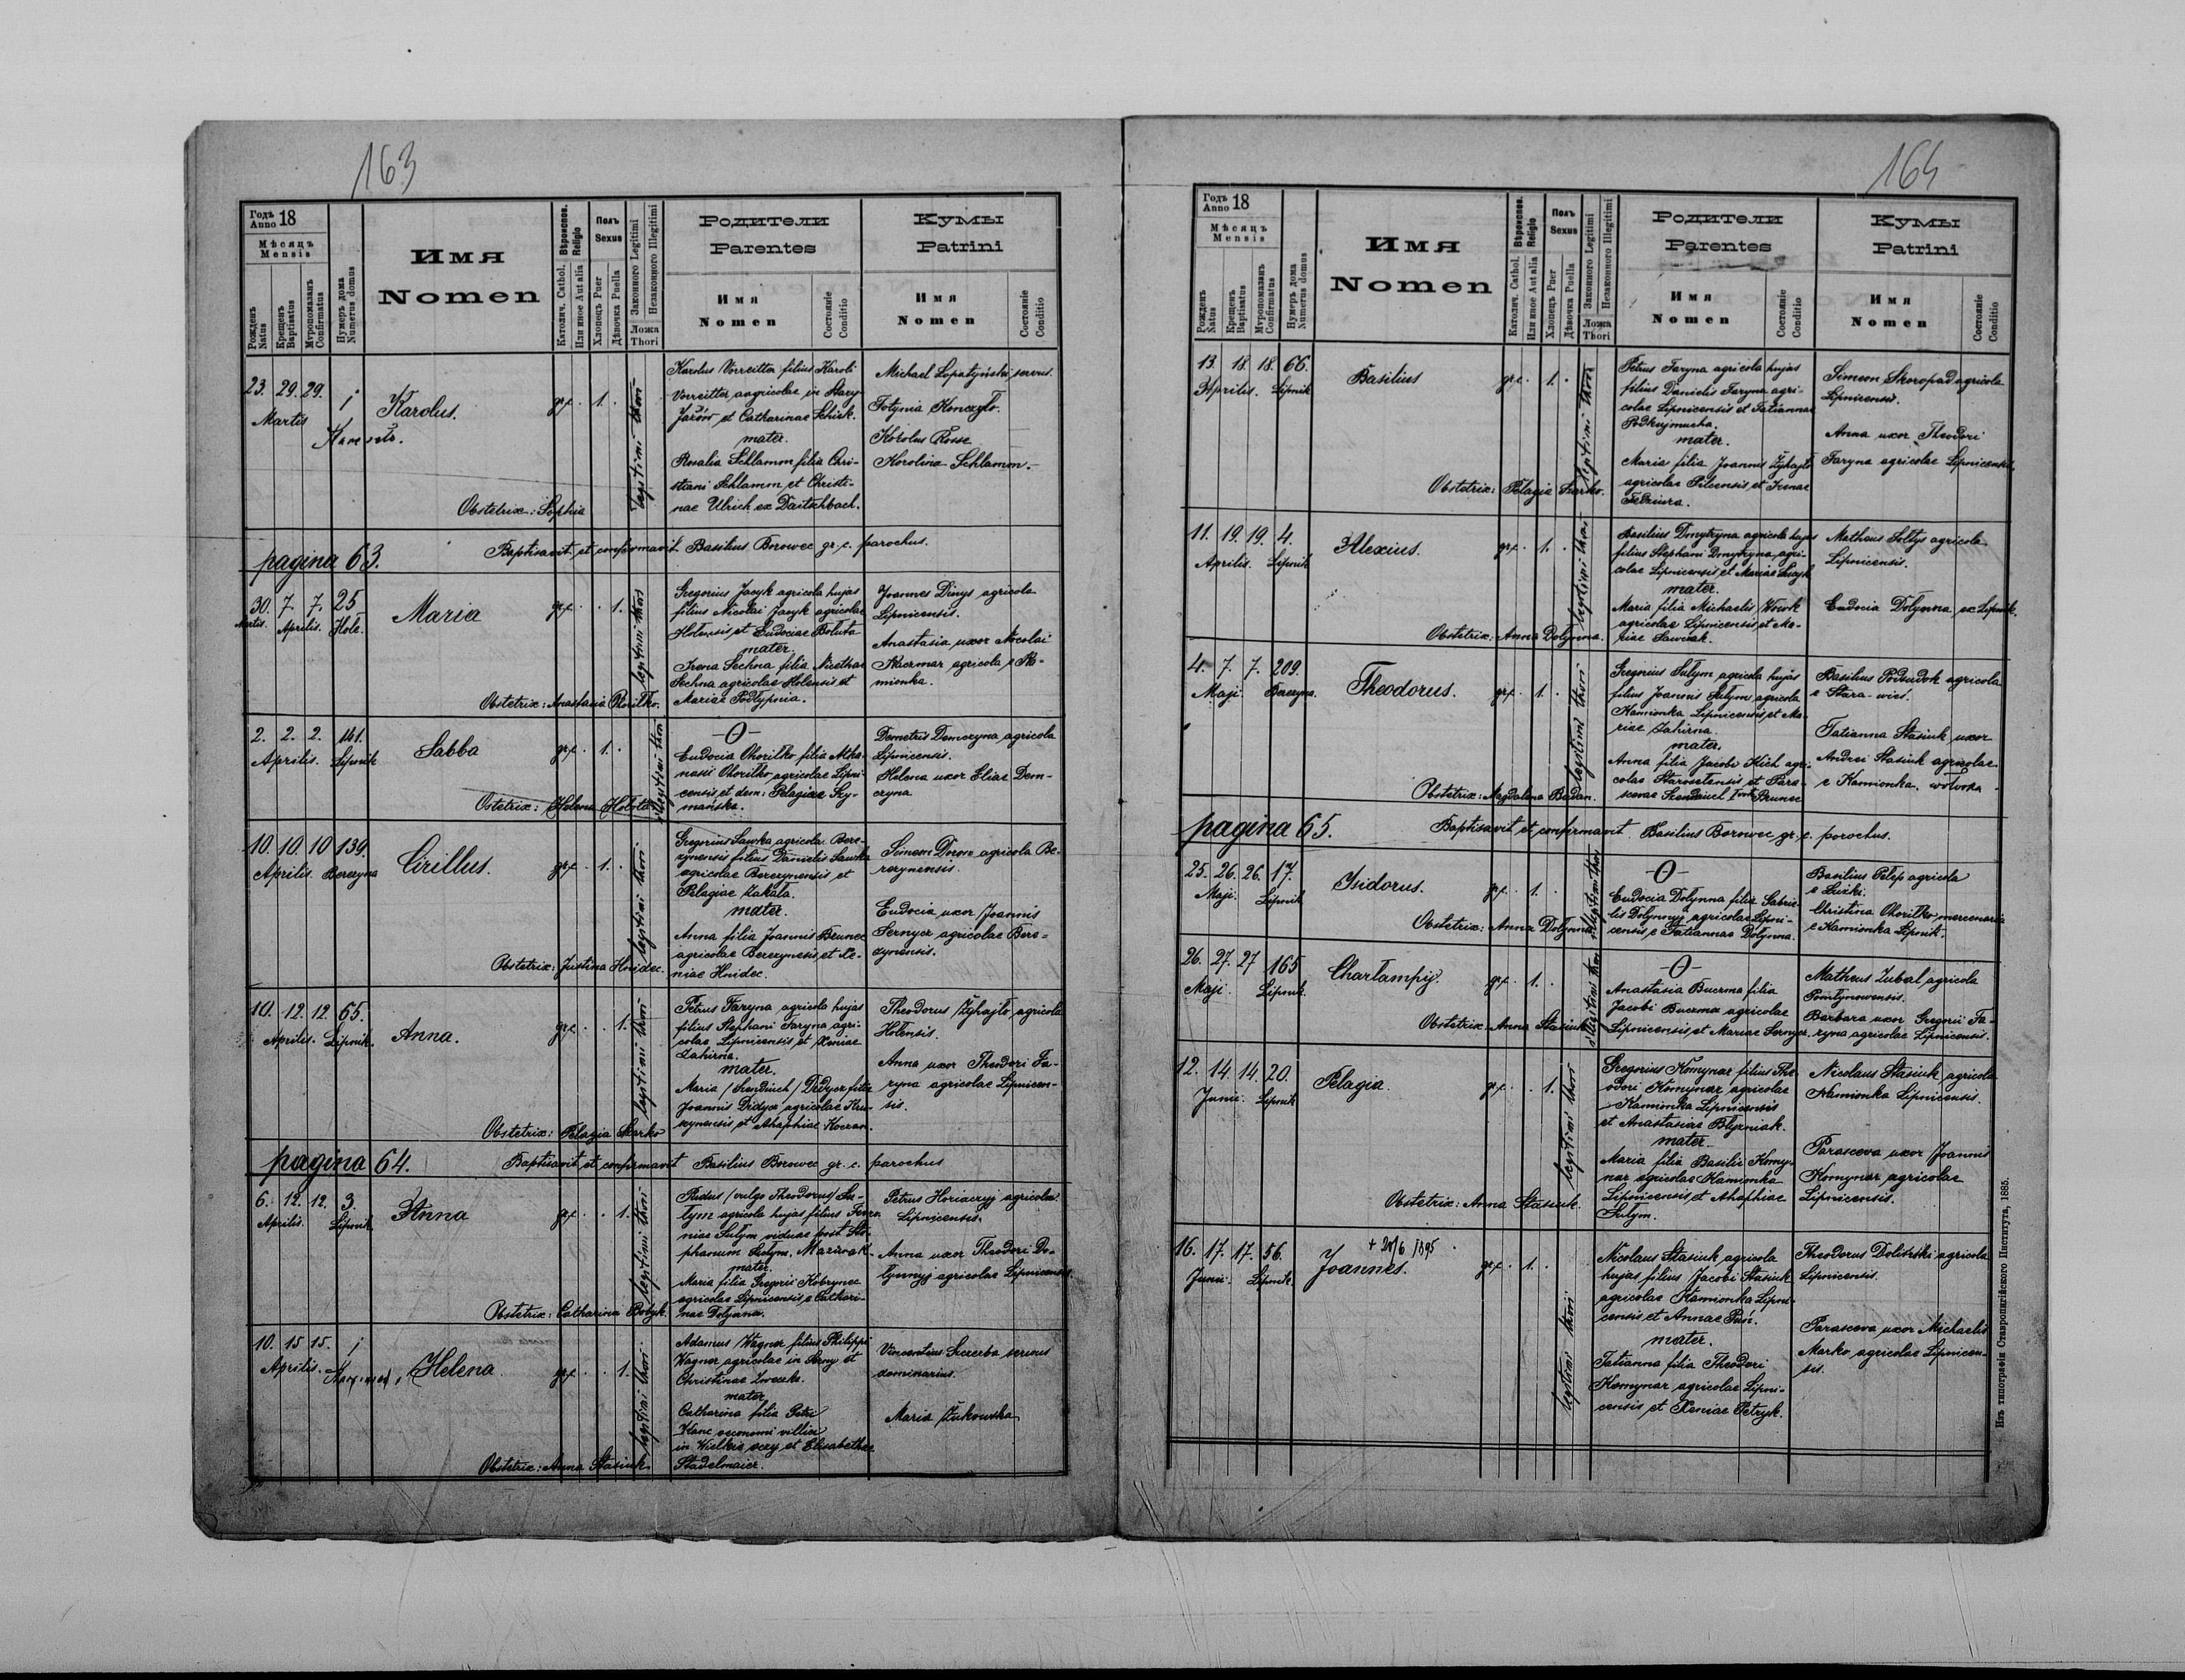 163
Годъ
Anno 18
Мѣсяцъ
Mensis
Рожденъ
Natus
Крещенъ
Baptisatus
Мѵропомазанъ
Confirmatus
Нумеръ дома
Numerus domus
Имя
Nomen
Вѣроиспов.
Religio
Католич. Cathol.
Или иное Aut alia
Полъ
Sexus
Хлопецъ Puer
Дѣвочка Puella
Законного Legitimi
Незаконного Illegitimi
Ложа
Thori
Родители
Parentes
Имя
Nomen
Состояніе
Conditio
Кумы
Patrini
Имя
Nomen
Состояніе
Conditio
23. 29. 29.
Martis
Karolus.
gr.c. 1.
legitimi thori
Karolus Vorreitter filius Karoli
Vorreitter, agricolae in Stary
Jażów et Catharinae Schick.
mater.
Rosalia Schlamm filia Chri-
stiani Schlamm et Christi-
nae Ulrich ex Daitschbach.
Michael Lopatyński, servus.
Fotynia Konczyło.
Karolus Rosse
Karolina Schlamm.
Obstetrix: Sophia
pagina 63.
Baptisavit et confirmavit Basilius Borowec gr. c. parochus.
30. 7. 7. 25
Martis. Aprilis. Hole.
Maria
gr.c. 1.
legitimi thori
Gregorius Jacyk agricola hujas
filius Nicolai Jacyk agricolae
Holensis et Eudociae Boluta
mater.
Irena Sechna filia Nicethae
Sechna agricolae Holensis et
Mariae Podłypnia.
Joannes Dinys agricola
Lipnicensis.
Anastasia uxor Nicolai
Kaczmar agricola e Ka-
mionka.
Obstetrix: Anastasia Chorilko.
2. 2. 2. 141.
Aprilis. Lipnik
Sabba
gr.c. 1.
illegitimi thori
-0-
Eudocia Chorilko filia Atha-
nasii Chorilko agricolae Lipni-
censis et dem: Pelagiae Szy-
mańska.
Demetris Demczyna agricola
Lipnicensis.
Helena uxor Eliae Dem-
czyna
Ostetrix: Helena Holota
10. 10. 10 139.
Aprilis. Berezyna
Cirillus.
gr.c. 1.
legitimi thori
Gregorius Sawka agricola Bere-
zynensis filius Danielis Sawka
agricolae Berezynensis et
Pelagiae Zakala.
mater.
Anna filia Joannis Brunec
agricolae Berezynesis et Xe-
niae Hnidec.
Simeon Dron agricola Be-
rezynensis.
Eudocia uxor Joannis
Sernycz agricolae Bere-
zynensis.
Obstetrix: Justina Hnidec.
10. 12. 12. 65.
Aprilis. Lipnik.
Anna.
gr.c. 1.
legitimi thori
Petrus Faryna agricola hujas
filius Stephani Faryna agri-
colae Lipnicensis et Xeniae
Zahirna.
mater.
Maria /Szendzich/ Didycz filia
Joannis Didycz agricolae Kru-
szynensis et Ahaphiae Koczan.
Theodorus Zyhajło agricola
Holensis.
Anna uxor Theodori Fa-
ryna agricolae Lipnicen-
sis.
Obstetrix: Pelagia Szarko
pagina 64.
Baptisavit et confirmavit Basilius Borowec gr. c. parochus
6. 12. 12. 3.
Aprilis. Lipnik.
Anna
gr.c. 1.
legitimi thori
/vulgo Theodorus/ Su-
lym agricola hujas filius
niae Sulym viduae post Ste-
phanum Sulym.
mater.
Maria filia Gregorii Kobrynec
agricolae Lipnicensis e Cathari-
nae Dolynna.
Petrus Horiaczyj agricola
Lipnicensis.
Anna uxor Theodori Do-
lynnyj agricolae Lipnicensis.
Obstetrix: Catharina Botyk.
10. 15 15.
Aprilis.
Helena.
gr.c. 1.
legitimi thori
Adamus Wagner filius Philippi
Wagner agricolae in Serny et
Christinae
mater.
Catharina filia Petri
Kanc oeconomi villici
in Wielkie oczy et Elisabethae
Stadelmaier.
Vincentius Szczerba servus
dominarius.
Maria Żukowska
Obstetrix: Anna Stasiuk.
164
Годъ
Anno 18
Мѣсяцъ
Mensis
Рожденъ
Natus
Крещенъ
Baptisatus
Мѵропомазанъ
Confirmatus
Нумеръ дома
Numerus domus
Имя
Nomen
Вѣроиспов.
Religio
Католич. Cathol.
Или иное Aut alia
Полъ
Sexus
Хлопецъ Puer
Дѣвочка Puella
Законного Legitimi
Незаконного Illegitimi
Ложа
Thori
Родители
Parentes
Имя
Nomen
Состояніе
Conditio
Кумы
Patrini
Имя
Nomen
Состояніе
Conditio
13. 18. 18. 66.
Aprilis. Lipnik
Basilius
gr.c. 1.
legitimi thori
Petrus Faryna agricola hujas
filius Danielis Faryna agri-
colae Lipnicensis et Tatiannae
Podkujmucha.
mater.
Maria filia Joannis Zyhajło
agricolae Pilcensis et Irenae
Fedziura.
Simeon Skoropad agricola
Lipnicensis.
Anna uxor Theodori
Faryna agricolae Lipnicensis.
Obstetrix: Pelagia Szarko.
11. 19. 19. 4.
Aprilis. Lipnik
Alexius.
gr.c. 1.
legitimi thori
Basilius Dmytryna agricola hujas
filius Stephani Dmytryna agri-
colae Lipnicensis et Mariae
mater.
Maria filia Michaelis Wowk
agricolae Lipnicensis et Ma-
riae Sawczak.
Matheus Soltys agricola
Lipnicensis.
Eudocia Dolynna ex Lipnik.
Obstetrix: Anna Dolynna.
4. 7. 7. 209.
Maji. Berezyna.
Theodorus.
gr.c. 1.
legitimi thori
Gregorius Sulym agricola hujas
filius Joannis Sulym agricola
Kamionka Lipnicensis et Ma-
riae Zahirna.
mater.
Anna filia Jacobi Kich agri-
colae Staroselensis et Para-
scevae Szendzich Brunec
Basilius Podsudok agricola
e Stara-wies.
Tatianna Stasiuk uxor
Andrei Stasiuk agricolae
e Kamionka wołoska
Obstetrix: Magdalena Badan.
pagina 65.
Baptisavit et confirmavit Basilius Borowec gr. c. parochus.
25. 26. 26. 17.
Maji. Lipnik
Isidorus.
gr.c. 1.
illegitimi thori
-0-
Eudocia Dolynna filia Gabrie-
lis Dolynnyj agricolae Lipni-
censis e Tatiannae Dolynna.
Basilius Pelep agricola
e Luźki.
Christina Chorilko mercenaria
e Kamionka Lipnik.
Obstetrix: Anna Dolynna
26. 27. 27 165
Maji. Lipnik.
Charlampij.
gr.c. 1.
illegitimi thori
-0-
Anastasia Buczma filia
Jacobi Buczma agricolae
Lipnicensis et Mariae Sernycz.
Matheus Zubal agricola
Pomlynowensis.
Barbara uxor Gregorii Fa-
ryna agricolae Lipnicensis.
Obstetrix Anna Stasiuk
12. 14. 14. 20.
Junii. Lipnik
Pelagia.
gr.c. 1.
legitimi thori
Gregorius Komynar filius The-
odori Komynar agricolae
Kamionka Lipnicensis
et Anastasiae Blyzniak.
mater.
Maria filia Basilii Komy-
nar agricolae Kamionka
Lipnicensis et Ahaphiae
Sulym.
Nicolaus Stasiuk agricola
Kamionka Lipnicensis.
Parasceva uxor Joannis
Komynar agricolae
Lipnicensis.
Obstetrix: Anna Stasiuk.
16. 17. 17. 56.
Junii. Lipnik.
+ 20/6 1895
Joannes.
gr.c. 1.
legitimi thori
Nicolaus Stasiuk agricola
hujas filius Jacobi Stasiuk
agricolae Kamionka Lipni-
censis et Annae Puń.
mater.
Tatianna filia Theodori
Komynar agricolae Lipni-
censis et Xeniae Petryk.
Theodorus Doliński agricola
Lipnicensis.
Parasceva uxor Michaelis
Marko agricolae Lipnicen-
sis.
Изъ типографіи Ставропигійского Института, 1885.